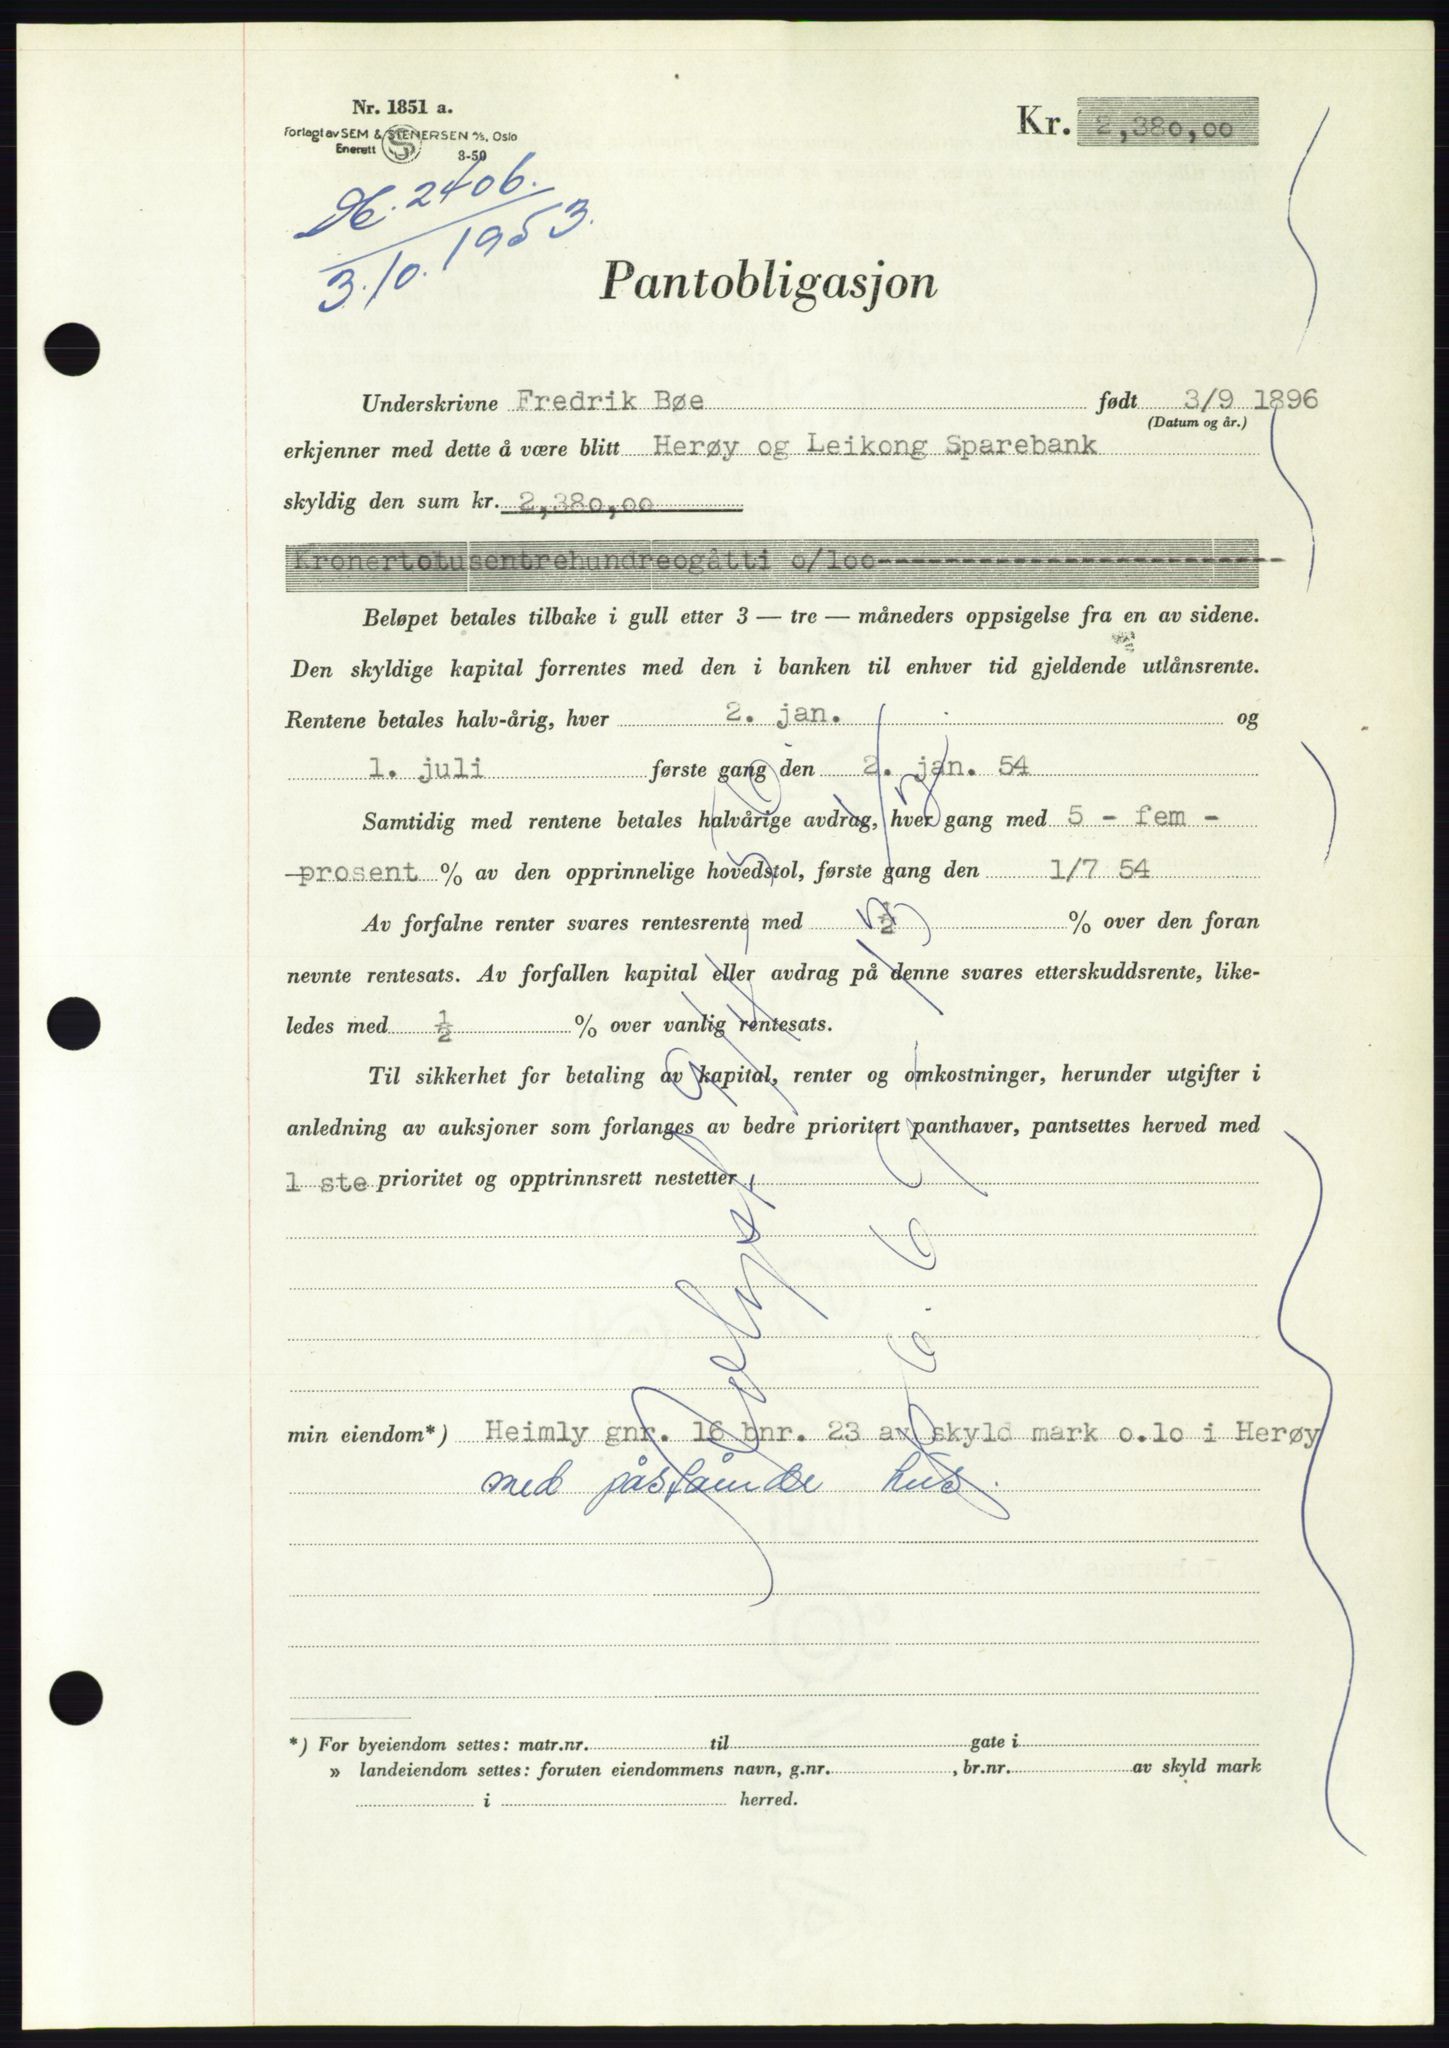 Nr. 1851 a.
Forlagt av SEM & STENERSEN A/S, Oslo
Enerett
3-50
Kr. 2,380,00
2406.
3.10.1953.
Pantobligasjon
Underskrivne Fredrik Bøe født 3/9 1896
(Datum og år.)
erkjenner med dette å være blitt Herøy og Leikong Sparebank
skyldig den sum kr. 2,380,00
Kronertotusentrehundreogåtti o/loo
Beløpet betales tilbake i gull etter 3 — tre — måneders oppsigelse fra en av sidene.
Den skyldige kapital forrentes med den i banken til enhver tid gjeldende utlånsrente.
Rentene betales halv-årig, hver 2. jan. og
1. juli første gang den 2. jan. 54
Samtidig med rentene betales halvårige avdrag, hver gang med 5 - fem -
prosent % av den opprinnelige hovedstol, første gang den 1/7 54
Av forfalne renter svares rentesrente med ½ % over den foran
nevnte rentesats. Av forfallen kapital eller avdrag på denne svares etterskuddsrente, like-
ledes med ½ % over vanlig rentesats.
Til sikkerhet for betaling av kapital, renter og omkostninger, herunder utgifter i
anledning av auksjoner som forlanges av bedre prioritert panthaver, pantsettes herved med
1 ste prioritet og opptrinnsrett nestetter
min eiendom*) Heimly gnr. 16 bnr. 23 av skyld mark o.lo i Herøy
med påståinde hus.
*) For byeiendom settes: matr.nr. til gate i
» landeiendom settes: foruten eiendommens navn, g.nr. , br.nr. av skyld mark
i herred.